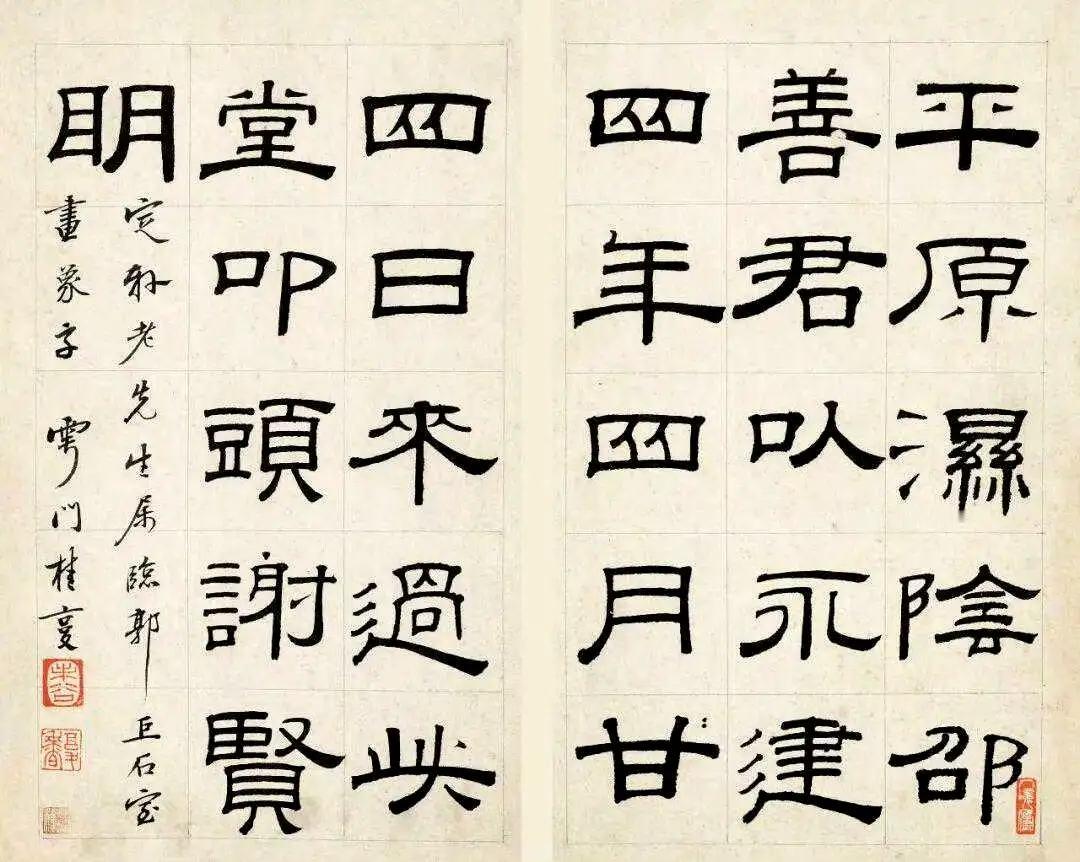 平原濕陰邵
善君以永建
四年四月甘
四日來過此
堂叩頭謝賢
明
定軒老先生属臨郭巨石室
畫象字 雩門桂馥
未谷